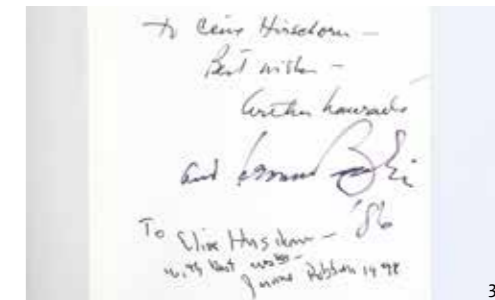 To Clive Hirschhorn –
Best wishes –
Arthur Laurents
and
'86
To Clive Hirschhorn –
with best wishes –
Jerome Robbins 1998
3